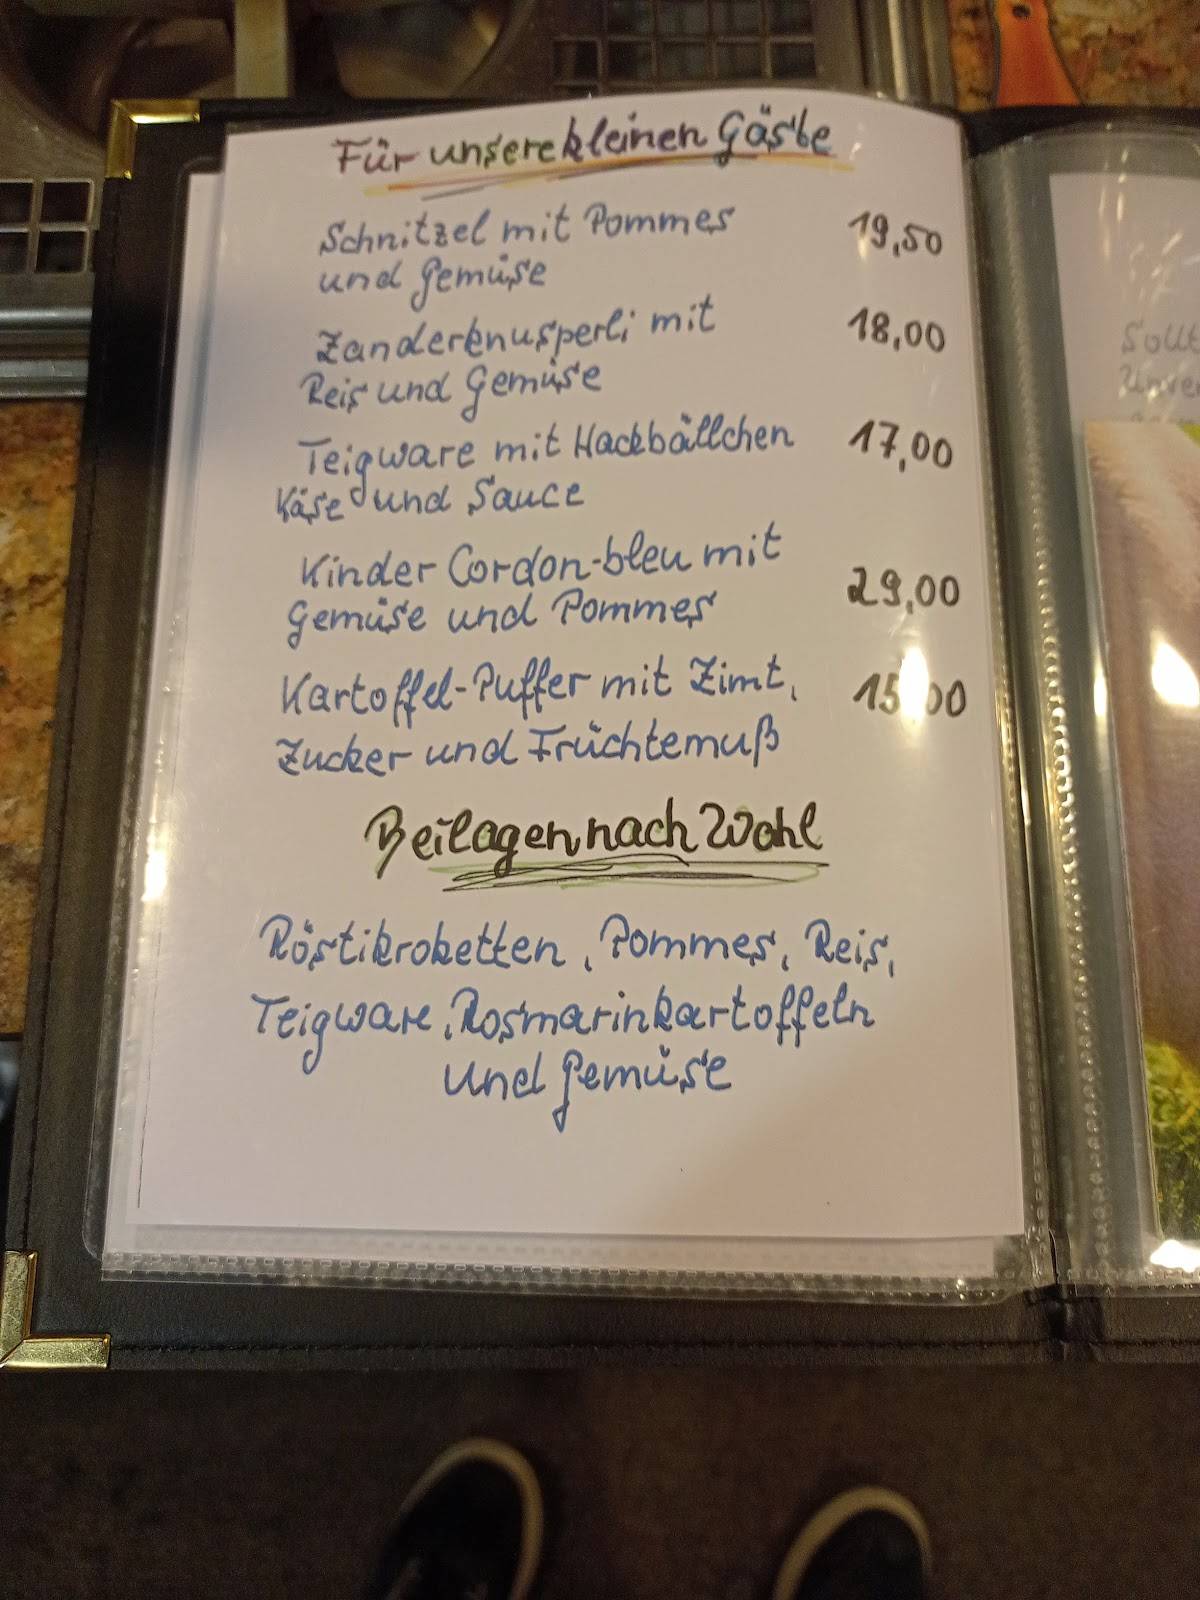 Für unsere kleinen Gäste
Schnitzel mit Pommes 19,50
und Gemüse
Zanderknusperli mit 18,00
Reis und Gemüse
Teigware mit Hackbällchen 17,00
Käse und Sauce
Kinder Cordon-bleu mit
Gemüse und Pommes 29,00
Kartoffel-Puffer mit Zimt, 15,00
Zucker und Früchtemuß
Beilagen nach Wahl
Röstikroketten, Pommes, Reis,
Teigware, Rosmarinkartoffeln
und Gemüse
Sollt